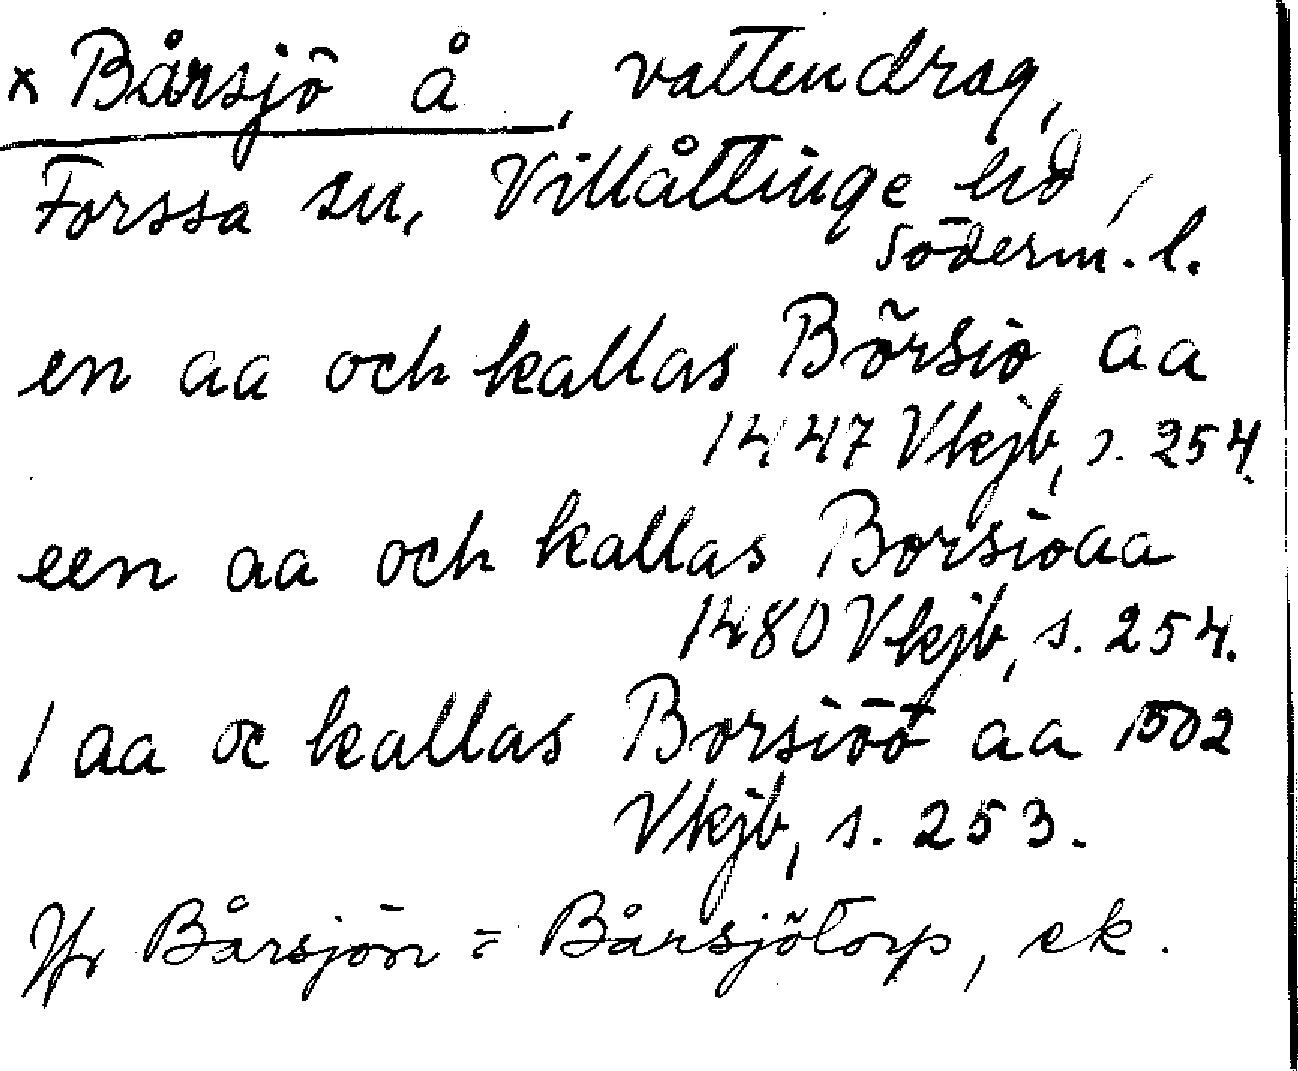 x Bårsjö å, vattendrag,
Forssa sn, Villåttinge hd,
Söderm. l.
en aa och kallas Börsiö aa
1447 Vkjb, s. 254.
een aa och kallas Borsioaa
1480 Vkjb, s. 254.
1 aa oc kallas Borsiöö aa 1502
Vkjb, s. 253.
Jfr Bårsjön = Bårsjötorp, ek.